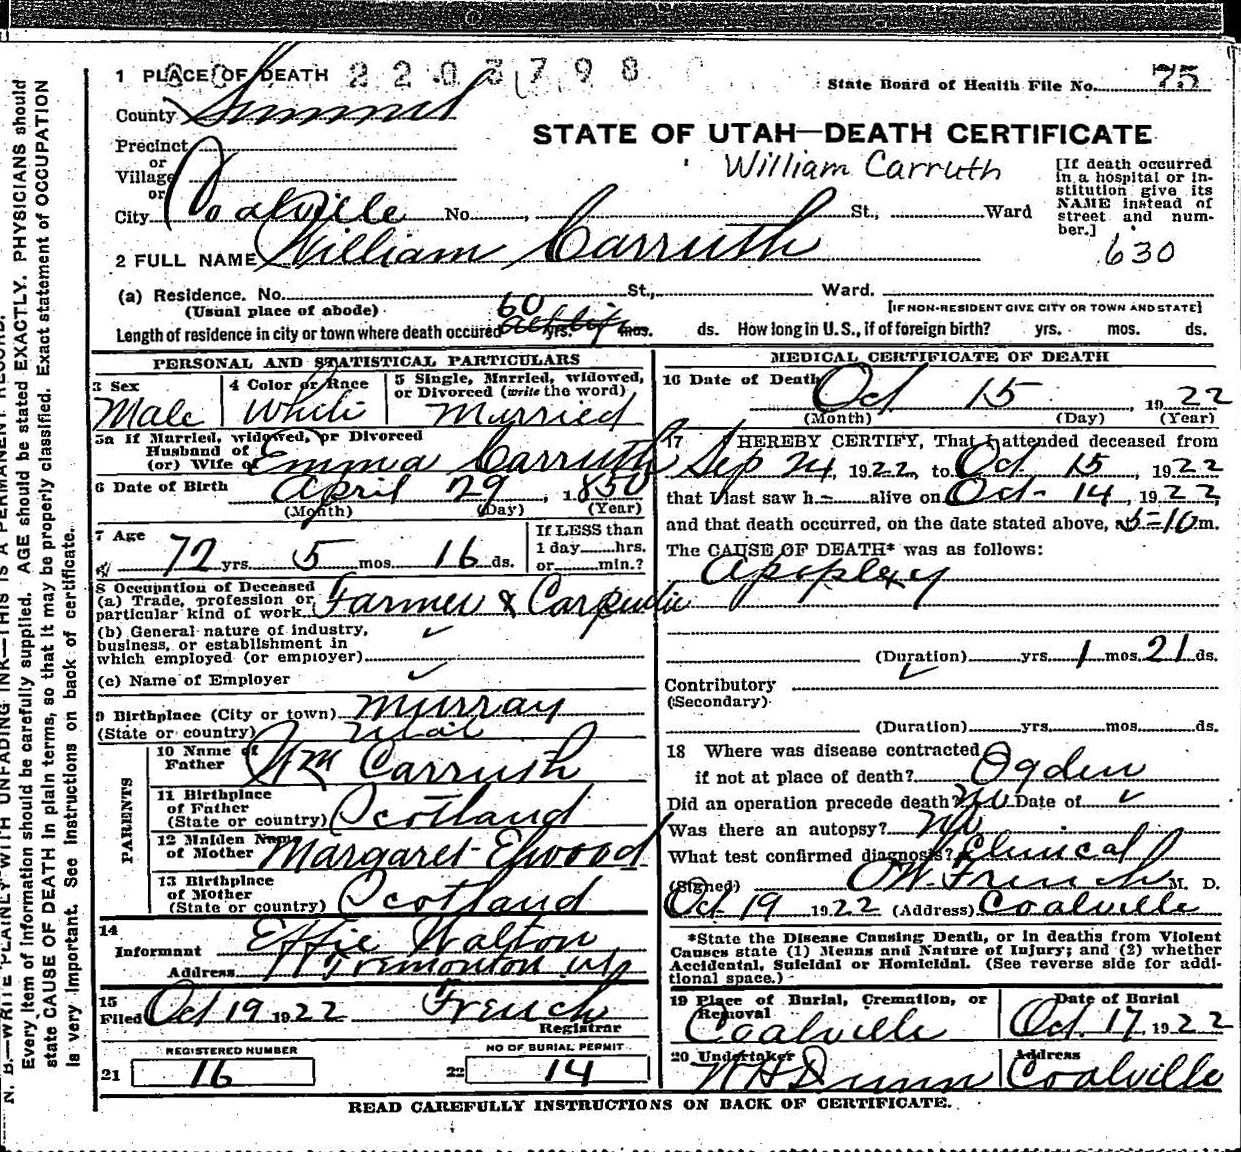 1 PLACE OF DEATH 2203798
State Board of Health File No. 75
County Summit
STATE OF UTAH—DEATH CERTIFICATE
Precinct
or
Village
or
William Carruth
[If death occurred in a hospital or institution give its NAME instead of street and number.]
City Coalville No. , St., Ward
630
2 FULL NAME William Carruth
(a) Residence. No. St., Ward.
(Usual place of abode) [IF NON-RESIDENT GIVE CITY OR TOWN AND STATE]
Length of residence in city or town where death occured 60 yrs. mos. ds. How long in U.S., if of foreign birth? yrs. mos. ds.
PERSONAL AND STATISTICAL PARTICULARS
3 Sex Male
4 Color or Race White
5 Single, Married, widowed, or Divorced (write the word) Married
5a If Married, widowed, or Divorced
Husband of
(or) Wife of Emma Carruth
6 Date of Birth April 29, 1850
(Month) (Day) (Year)
7 Age 72 yrs. 5 mos. 16 ds.
If LESS than
1 day......hrs.
or......min.?
8 Occupation of Deceased
(a) Trade, profession or
particular kind of work Farmer & Carpenter
(b) General nature of industry,
business, or establishment in
which employed (or employer) ✓
(c) Name of Employer ✓
9 Birthplace (City or town) Murray
(State or country) Utah
PARENTS
10 Name of
Father Wm Carruth
11 Birthplace
of Father
(State or country) Scotland
12 Maiden Name
of Mother Margaret Elwood
13 Birthplace
of Mother
(State or country) Scotland
14
Informant Effie Walton
Address Tremonton
15
Filed Oct 19 1922 French
Registrar
REGISTERED NUMBER
21 16
NO OF BURIAL PERMIT
22 14
MEDICAL CERTIFICATE OF DEATH
16 Date of Death Oct 15, 1922
(Month) (Day) (Year)
17 I HEREBY CERTIFY, That I attended deceased from
Sep 24, 1922, to Oct 15, 1922
that I last saw h alive on Oct 14, 1922,
and that death occurred, on the date stated above, at 5-10 m.
The CAUSE OF DEATH* was as follows:
Apoplexy
(Duration) yrs. 1 mos. 21 ds.
Contributory
(Secondary)
(Duration) yrs. mos. ds.
18 Where was disease contracted
if not at place of death? Ogden
Did an operation precede death? No Date of ✓
Was there an autopsy? No
What test confirmed diagnosis? Clinical
(Signed) OW. French M. D.
Oct 19 1922 (Address) Coalville
*State the Disease Causing Death, or in deaths from Violent
Causes state (1) Means and Nature of Injury; and (2) whether
Accidental, Suicidal or Homicidal. (See reverse side for additional space.)
19 Place of Burial, Cremation, or
Removal Coalville
Date of Burial
Oct. 17, 1922
20 Undertaker
Dunn
Address
Coalville
READ CAREFULLY INSTRUCTIONS ON BACK OF CERTIFICATE.
N. B.—WRITE PLAINLY WITH UNFADING INK—THIS IS A PERMANENT RECORD.
Every item of information should be carefully supplied. AGE should be stated EXACTLY. PHYSICIANS should
state CAUSE OF DEATH in plain terms, so that it may be properly classified. Exact statement of OCCUPATION
is very important. See instructions on back of certificate.